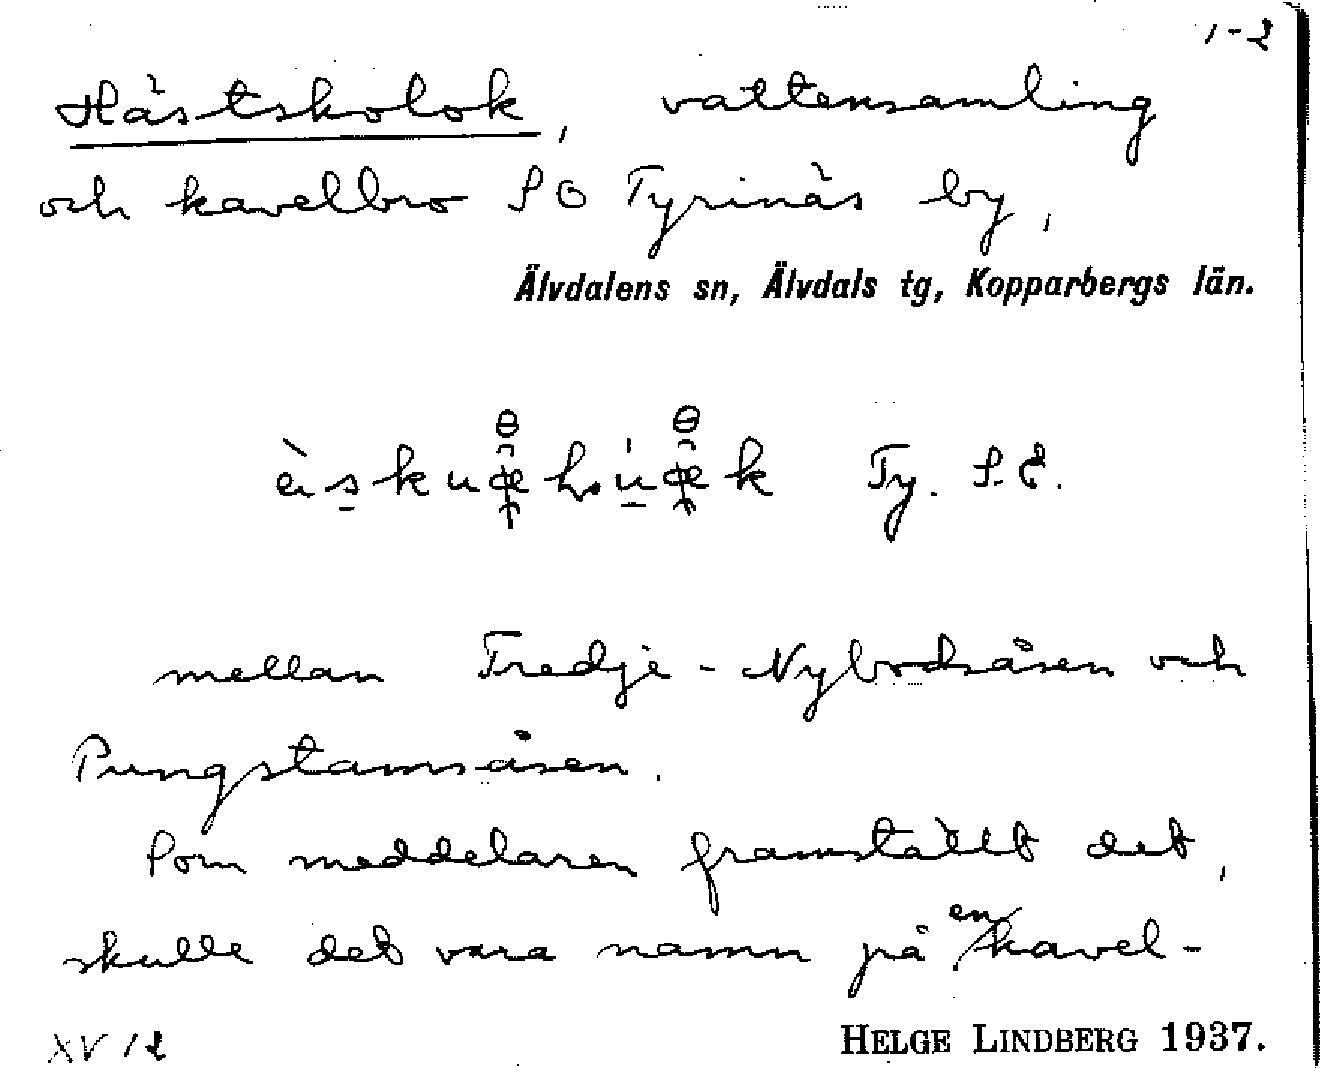 1-2
Hästskolok, vattensamling
och kavelbro SO Tyrinäs by,
Älvdalens sn, Älvdals tg, Kopparbergs län.
Ty. S.E.
mellan Tredje-Nybodsåsen och
Pungstamsåsen.
Som meddelaren framställt det,
skulle det vara namn på en kavel-
XV 12
HELGE LINDBERG 1937.